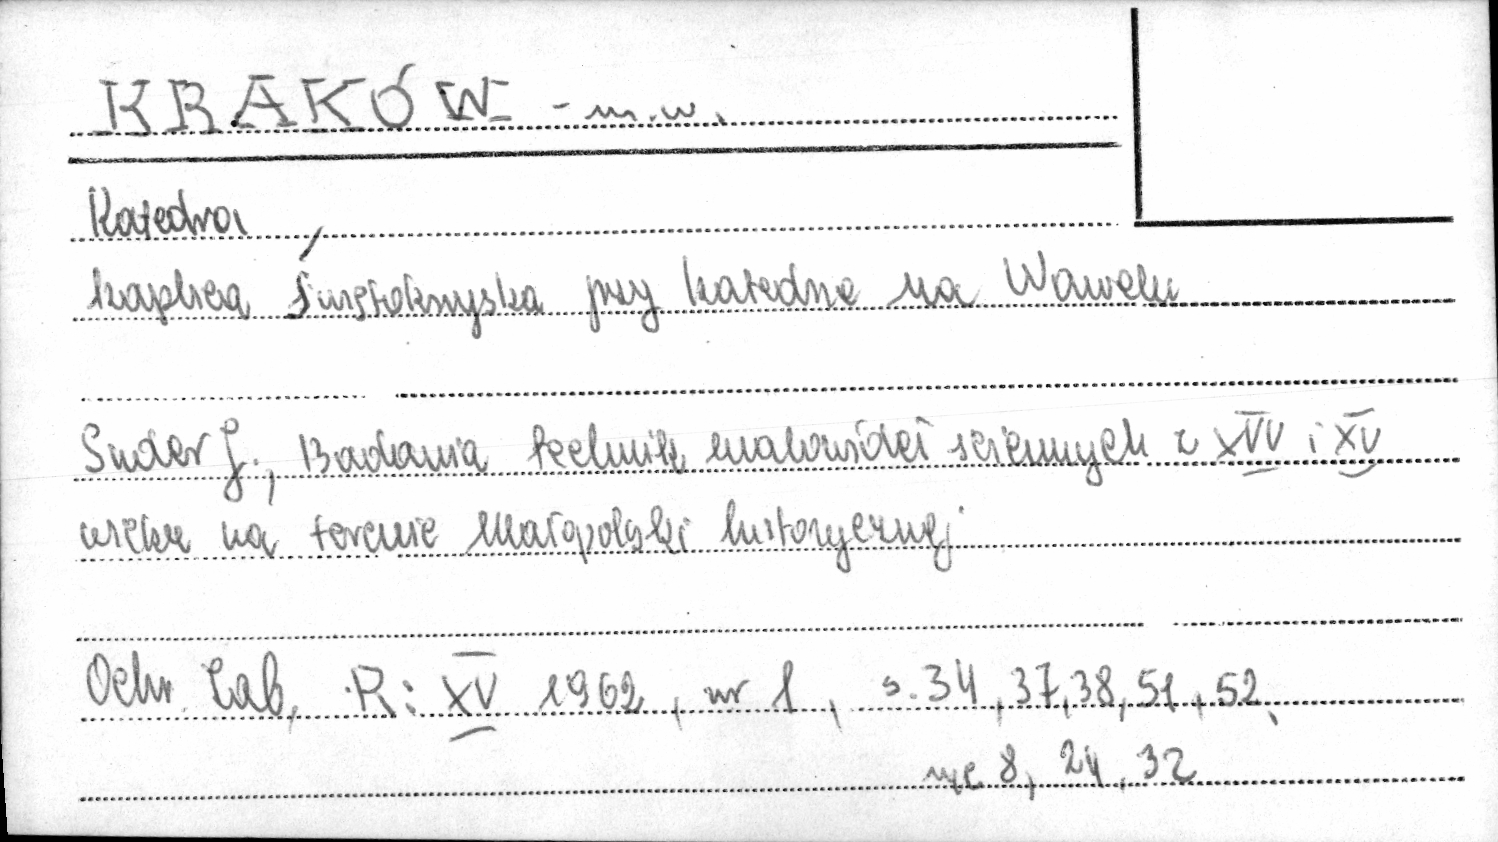 KRAKÓW - m.w.
Katedra
kaplica Świętokrzyska przy katedrze na Wawelu
Suder J., Badania technik malowideł ściennych z XIV i XV
wieku na terenie Małopolski historycznej
Ochr. Zab., R: XV 1962, nr 1, s. 34, 37, 38, 51, 52,
ryc 8, 24, 32